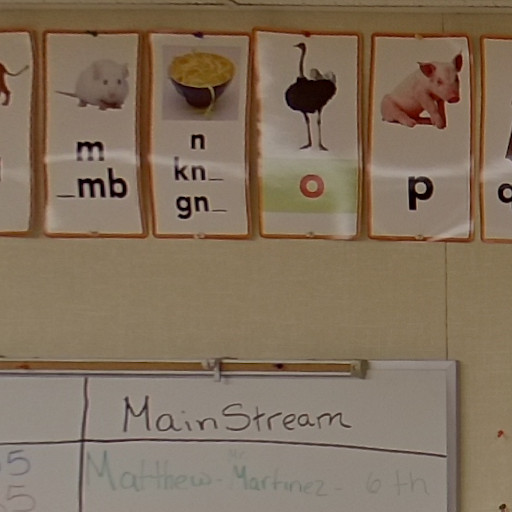 m
_mb
n
kn_
gn_
o
p
MainStream
5 Matthew - Mr. Martinez - 6th
5